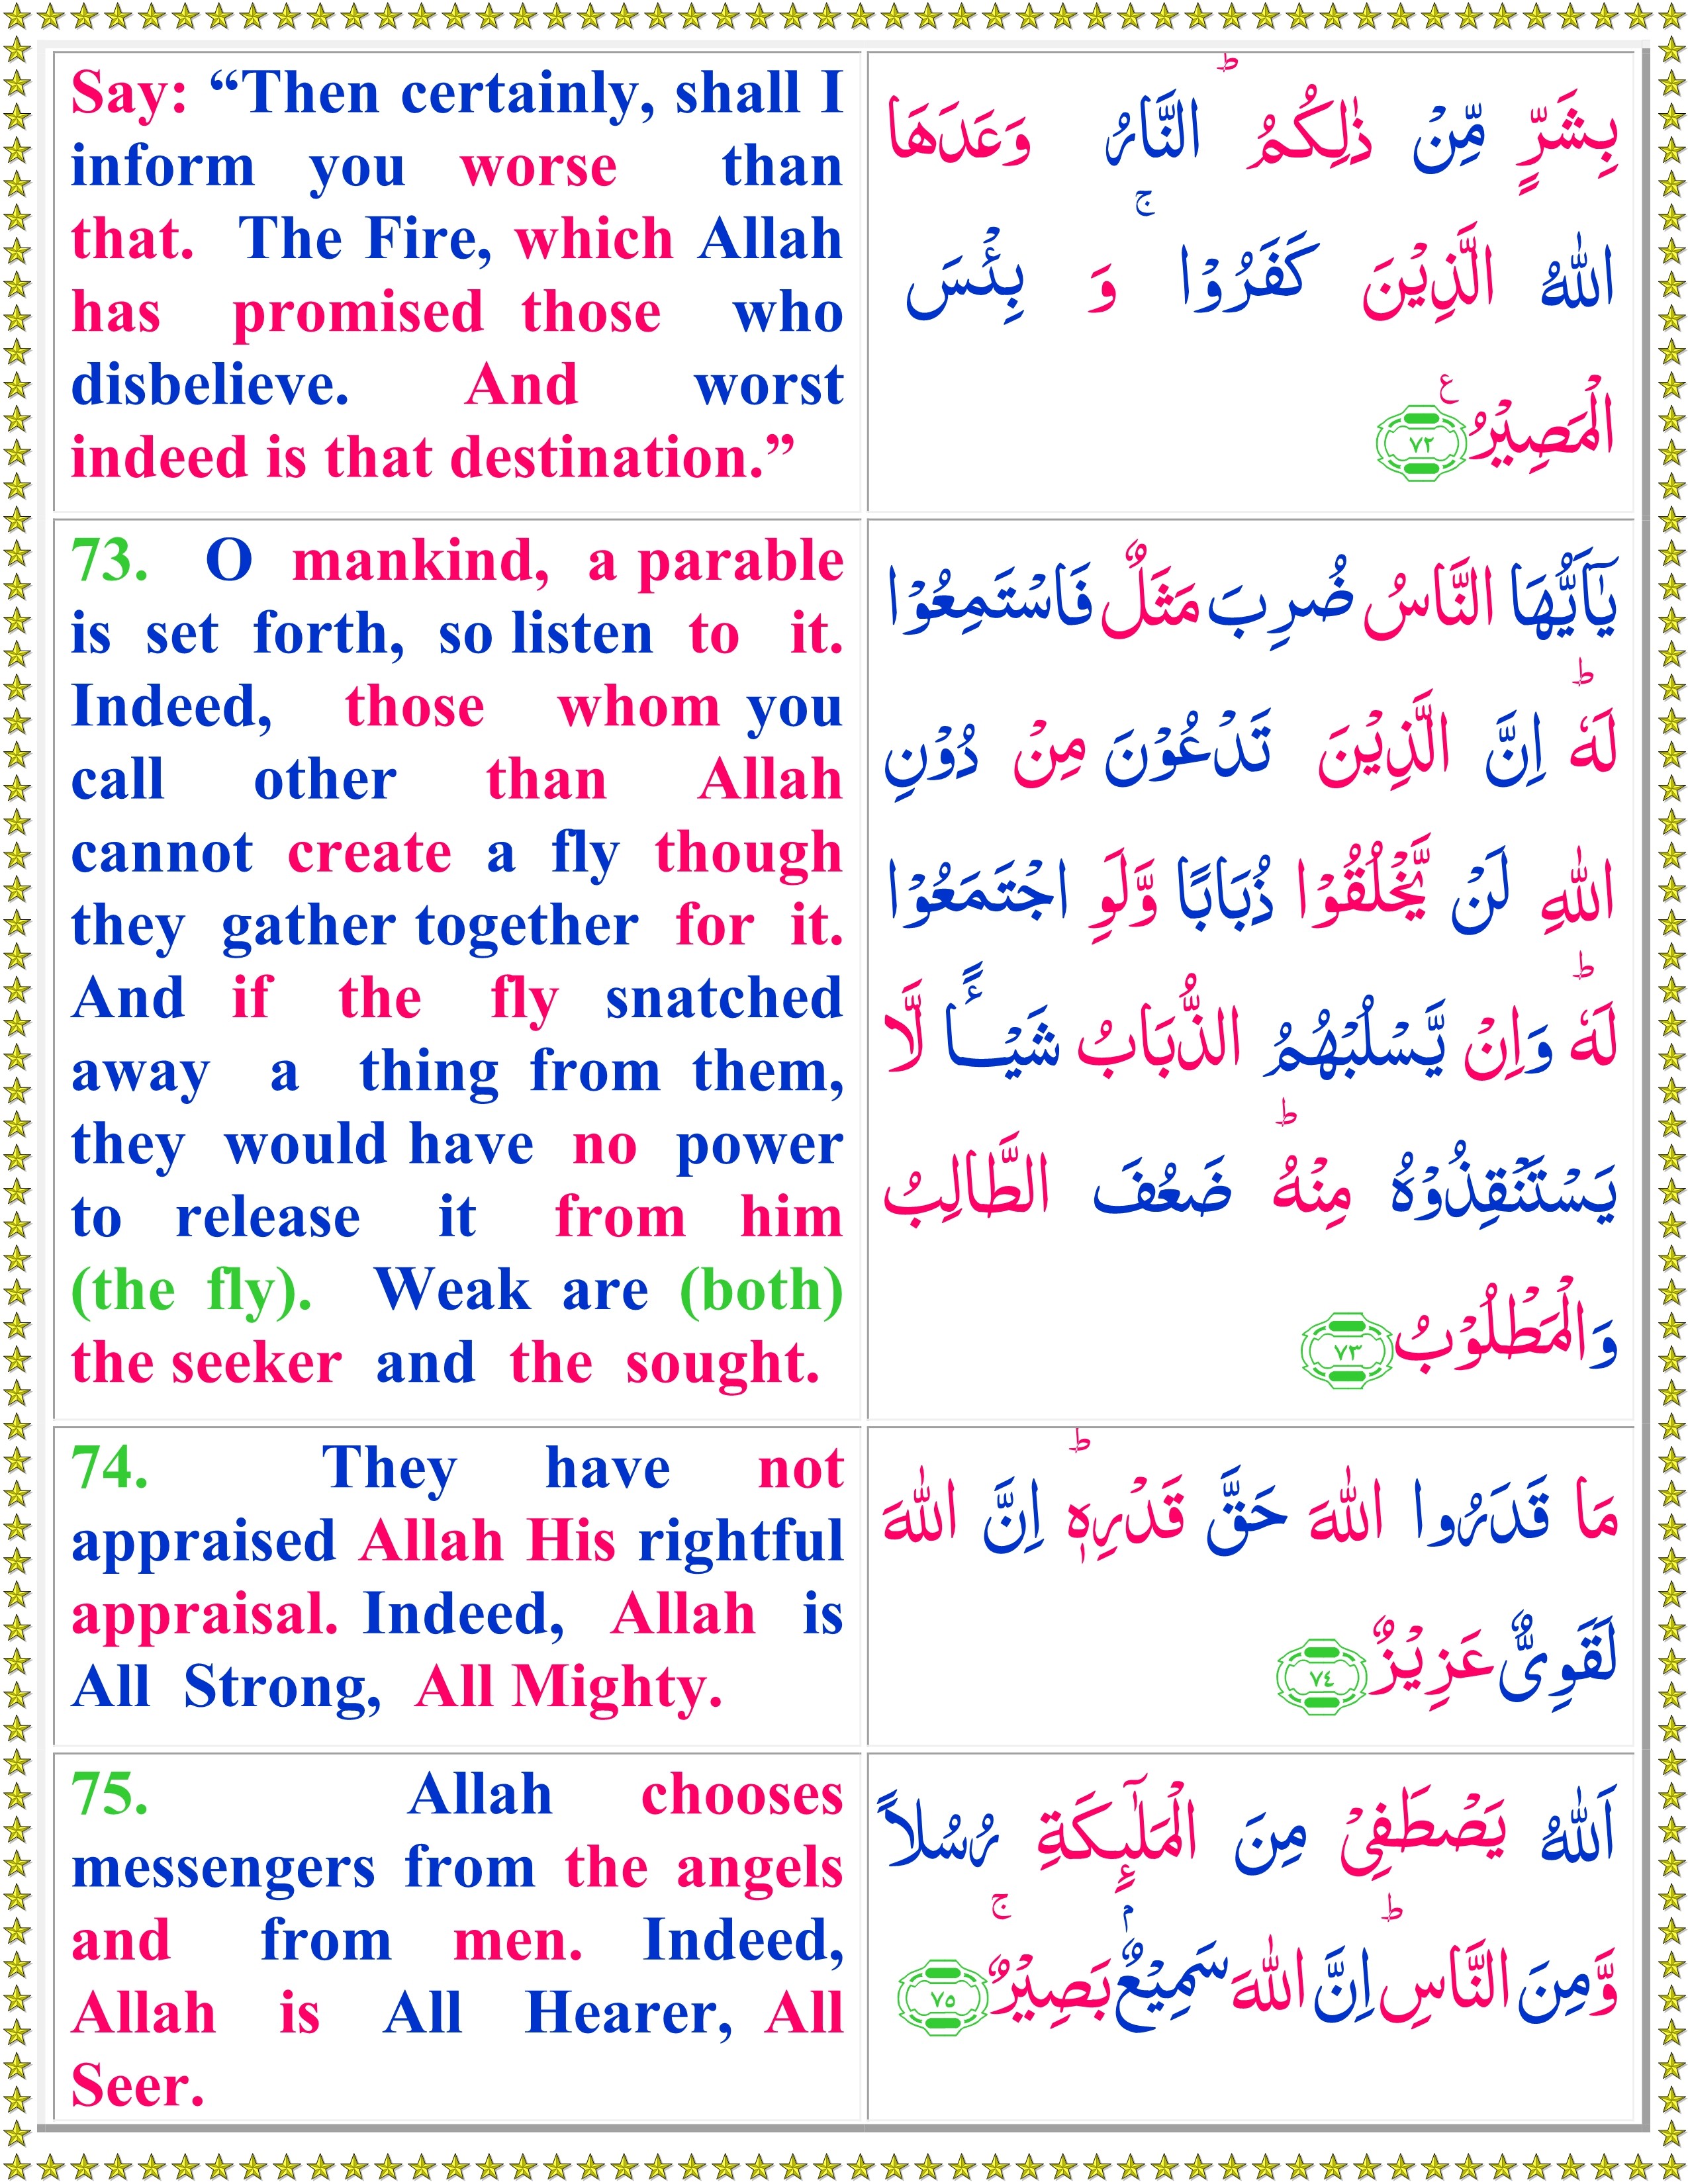 Say: “Then certainly, shall I
inform you worse than
that. The Fire, which Allah
has promised those who
disbelieve. And worst
indeed is that destination.”
بِشَرٍّ مِّنْ ذٰلِكُمُ ؕ النَّارُ وَعَدَهَا
اللّٰهُ الَّذِيْنَ كَفَرُوْا ۚ وَ بِئْسَ
الْمَصِيْرُ ۧ ﴿٧٢﴾
73. O mankind, a parable
is set forth, so listen to it.
Indeed, those whom you
call other than Allah
cannot create a fly though
they gather together for it.
And if the fly snatched
away a thing from them,
they would have no power
to release it from him
(the fly). Weak are (both)
the seeker and the sought.
يٰۤاَيُّهَا النَّاسُ ضُرِبَ مَثَلٌ فَاسْتَمِعُوْا
لَهٗ ؕ اِنَّ الَّذِيْنَ تَدْعُوْنَ مِنْ دُوْنِ
اللّٰهِ لَنْ يَّخْلُقُوْا ذُبَابًا وَّلَوِ اجْتَمَعُوْا
لَهٗ ؕ وَاِنْ يَّسْلُبْهُمُ الذُّبَابُ شَيْــًٔـا لَّا
يَسْتَنْقِذُوْهُ مِنْهُ ؕ ضَعُفَ الطَّالِبُ
وَالْمَطْلُوْبُ ﴿٧٣﴾
74. They have not
appraised Allah His rightful
appraisal. Indeed, Allah is
All Strong, All Mighty.
مَا قَدَرُوا اللّٰهَ حَقَّ قَدْرِهٖ ؕ اِنَّ اللّٰهَ
لَقَوِىٌّ عَزِيْزٌ ﴿٧٤﴾
75. Allah chooses
messengers from the angels
and from men. Indeed,
Allah is All Hearer, All
Seer.
اَللّٰهُ يَصْطَفِىْ مِنَ الْمَلٰٓٮِٕكَةِ رُسُلاً
وَّمِنَ النَّاسِ ؕ اِنَّ اللّٰهَ سَمِيْعٌۢ بَصِيْرٌ ۚ ﴿٧٥﴾